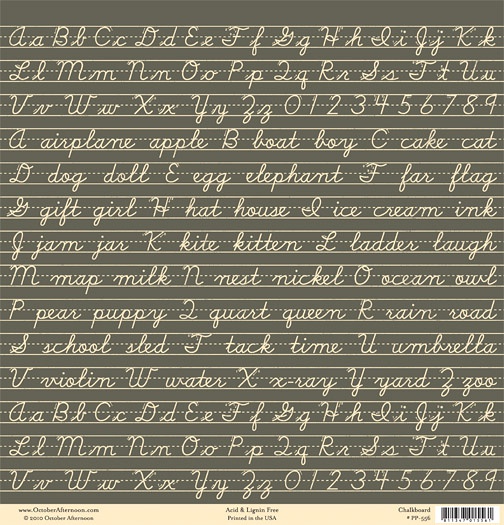 Aa Bb Cc Dd Ee Ff Gg Hh Ii Jj Kk
Ll Mm Nn Oo Pp Qq Rr Ss Tt Uu
Vv Ww Xx Yy Zz 0 1 2 3 4 5 6 7 8 9
A airplane apple B boat boy C cake cat
D dog doll E egg elephant F far flag
G gift girl H hat house I ice cream ink
J jam jar K kite kitten L ladder laugh
M map milk N nest nickel O ocean owl
P pear puppy Q quart queen R rain road
S school sled T tack time U umbrella
V violin W water X x-ray Y yard Z zoo
Aa Bb Cc Dd Ee Ff Gg Hh Ii Jj Kk
Ll Mm Nn Oo Pp Qq Rr Ss Tt Uu
Vv Ww Xx Yy Zz 0 1 2 3 4 5 6 7 8 9
www.OctoberAfternoon.com Acid & Lignin Free Chalkboard
© 2010 October Afternoon Printed in the USA # PP-556